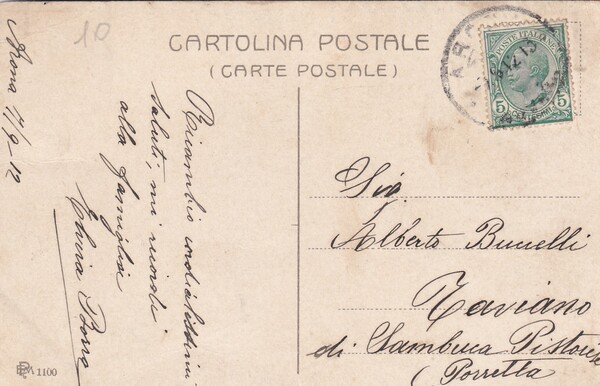 10
CARTOLINA POSTALE
(CARTE POSTALE)
POSTE ITALIANE
5 5
Arona 7/9-12
Ricambio cordialissimi
saluti, mi ricordi
alla famiglia
Elvira
Sig.
Alberto Buccelli
Taviano
di Sambuca Pistoiese
(Porretta
1100